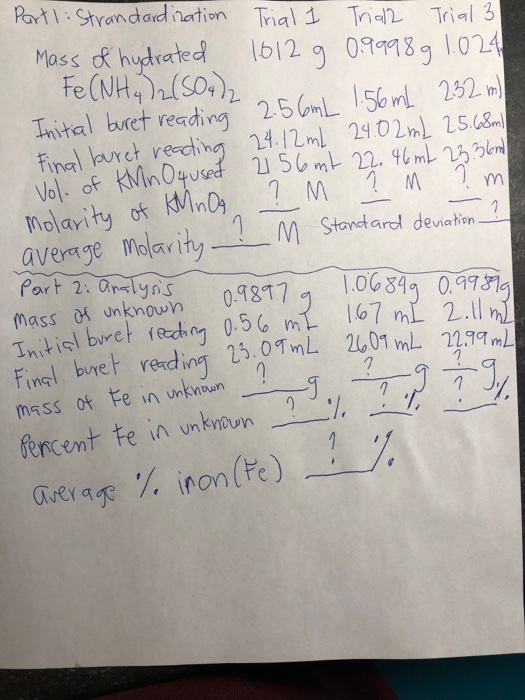 Part 1: Strandardization Trial 1 Trial2 Trial 3
Mass of hydrated 1.012 g 0.9998 g 1.024
Fe(NH4)2(SO4)2
Initial buret reading 2.56mL 1.56 mL 2.32 ml
Final buret reading 24.12ml 24.02ml 25.68ml
Vol. of KMnO4 used 21.56 ml 22.46mL 23.36ml
Molarity of KMnO4 ? M ? M ? m
average molarity ? M Standard deviation ?
Part 2: analysis
mass of unknown 0.9897 g 1.0684g 0.9989g
Initial buret reading 0.56 mL 1.67 mL 2.11 mL
Final buret reading 23.09mL 26.09 mL 22.99 mL
mass of Fe in unknown ? g ? g ? g
Percent Fe in unknown ? % ? % ? %
average % iron (Fe) ? %